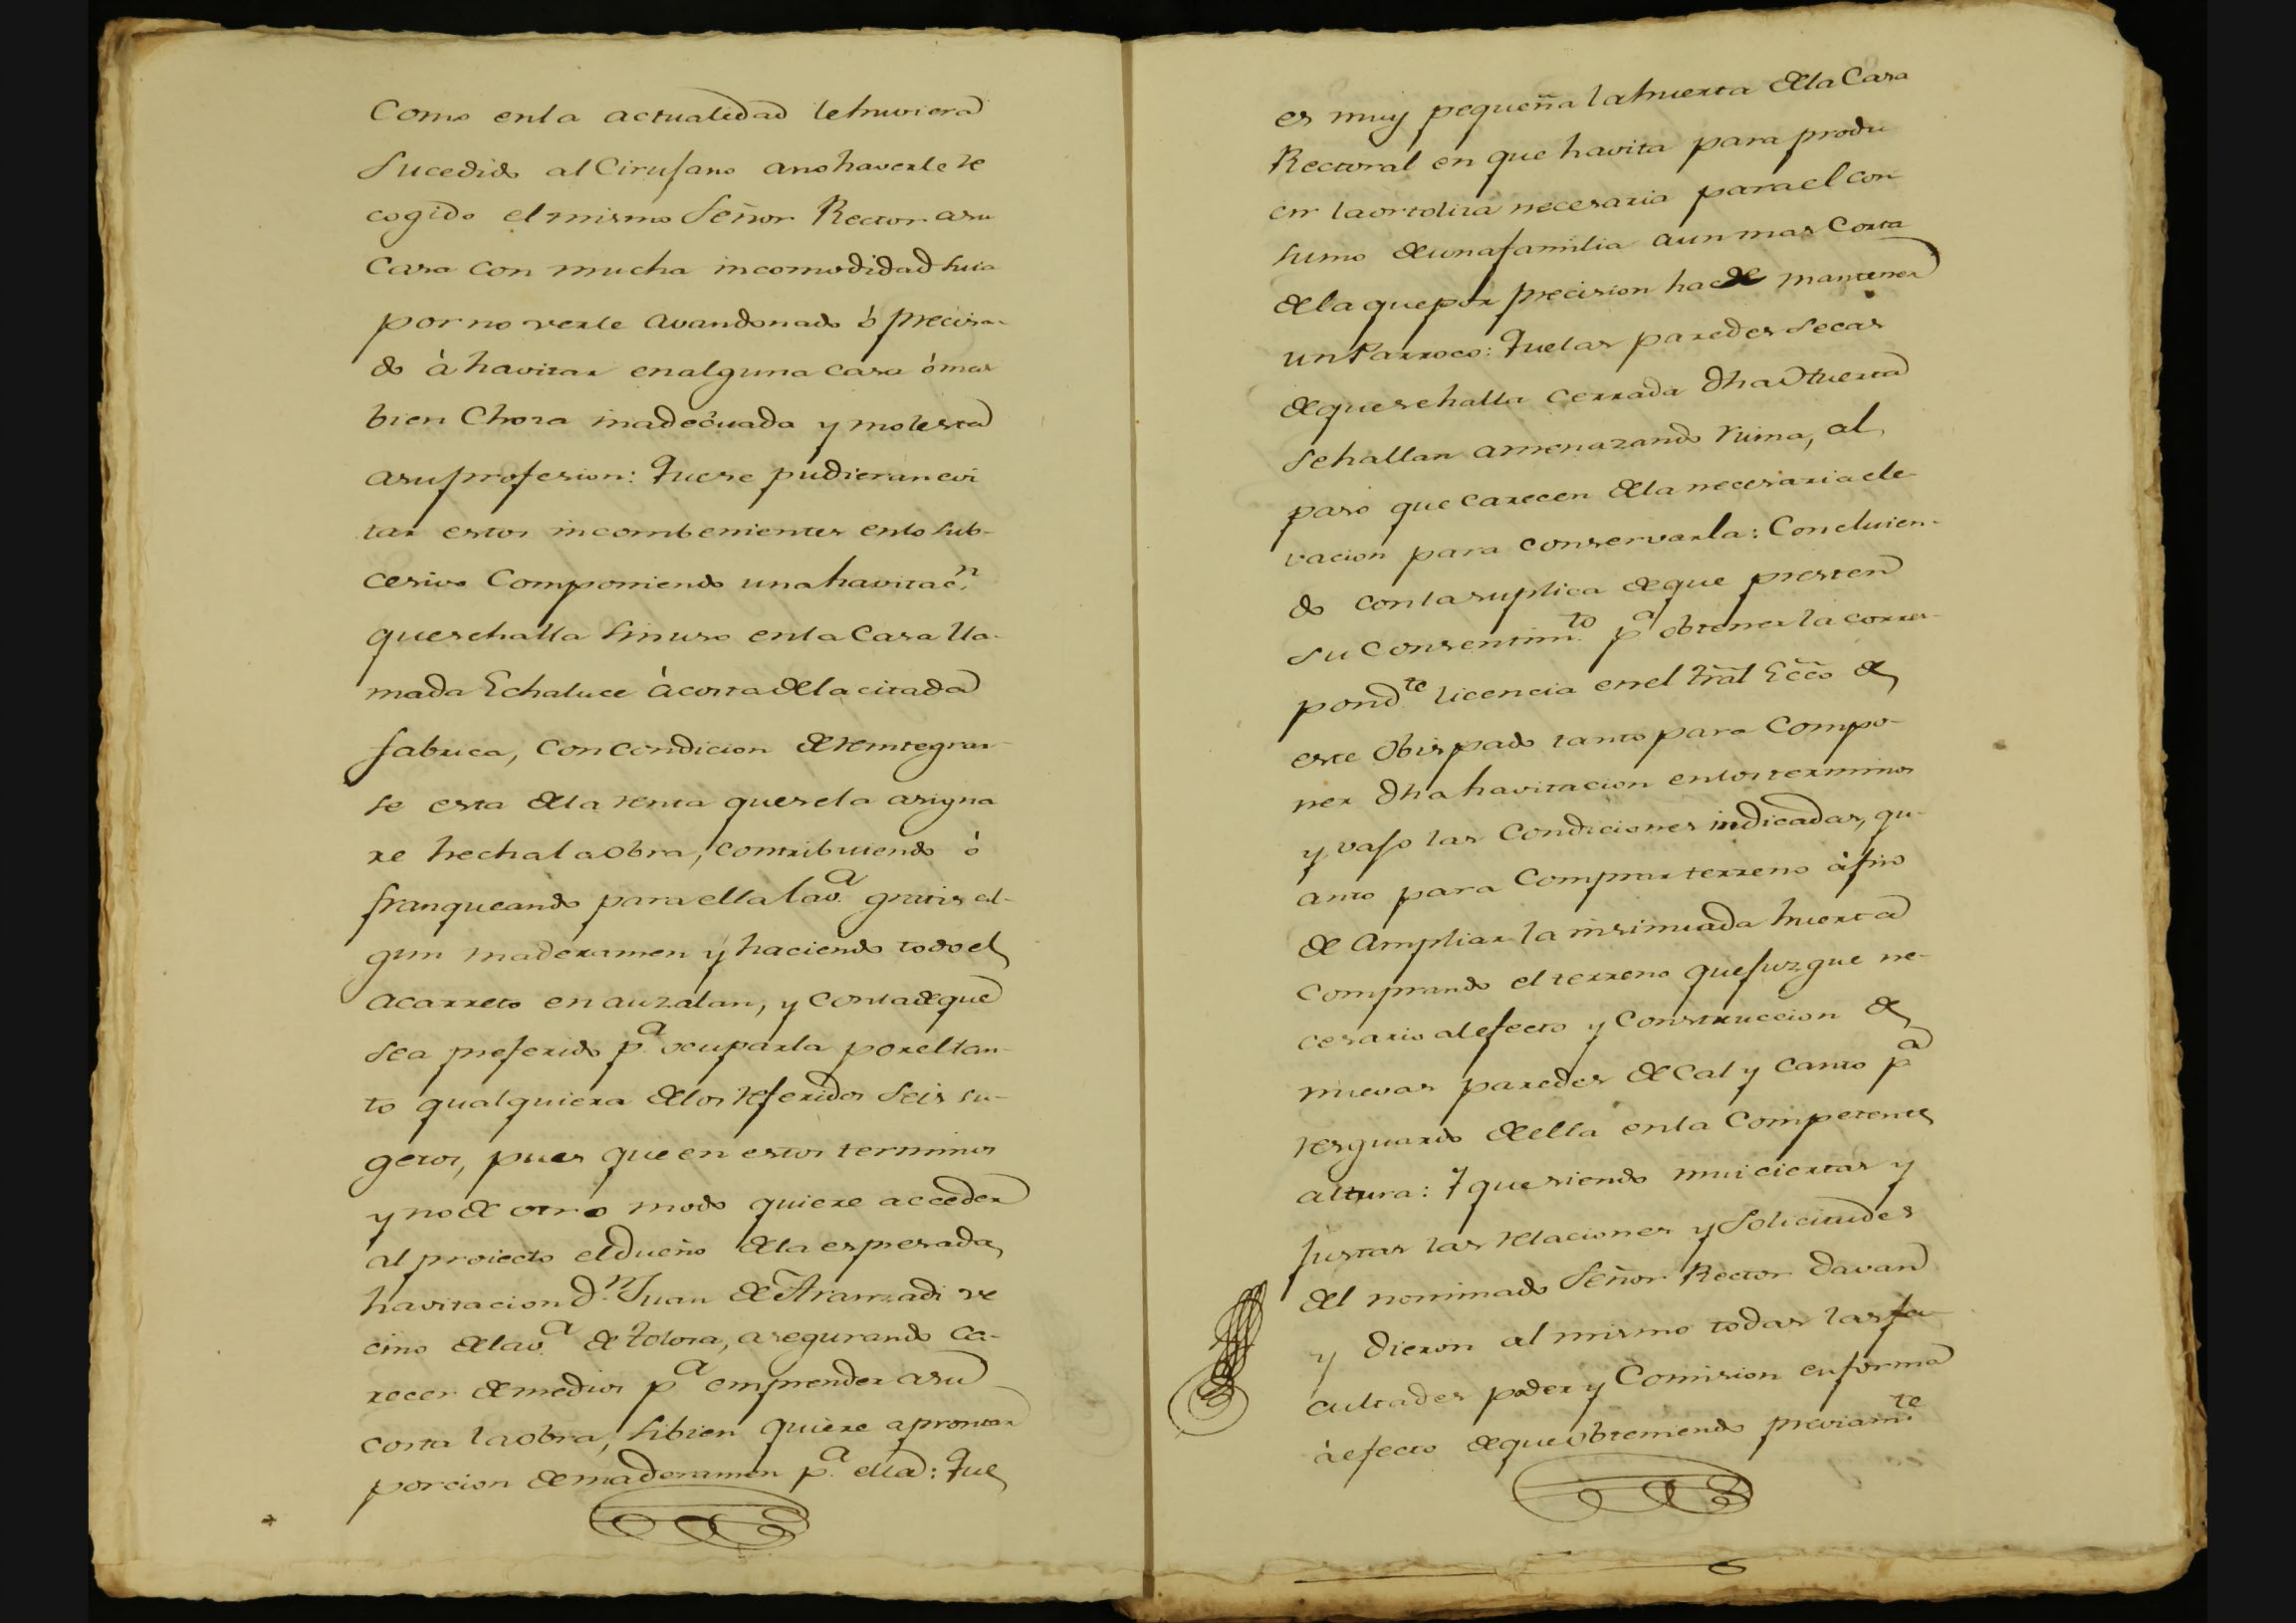 Como en la actualidad le huviera
Sucedido al Cirujano a no haverle re
cogido el mismo Señor Rector a su
Casa con mucha incomodidad suia
por no verle avandonado ó precisa-
do à havitar en alguna casa ó mas
bien Choza inadecuada y molesta
a su profesion: Que se pudieran evi
tar estos incombenientes en lo sub-
cesivo Componiendo una havitacn.
que se halla sin uso en la Casa lla-
mada Echaluce à costa de la citada
fabrica, con condicion de reintegrar-
se esta de la renta que se la asigna
re hecha la obra, contribuiendo ó
franqueando para ella la va. gratis al-
gun maderamen y haciendo todo el
acarreto en auzalan, y con la de que
sea preferido pa. ocuparla por el tan-
to qualquiera de los referidos seis su-
getos, pues que en estos terminos
y no de otro modo quiere acceder
al proiecto el dueño de la espresada
havitacion Dn. Juan de Aranzadi ve
cino de la va. de Tolosa, asegurando ca-
recer de medios pa. emprender a su
costa la obra, si bien quiere aprontar
porcion de maderamen pa. ella: Que
es muy pequeña la huerta de la Casa
Rectoral en que havita para produ
cir la ortaliza necesaria para el con
sumo de una familia aun mas Corta
de la que por precision ha de mantener
un Parroco: Que las paredes secas
de que se halla cerrada dha Huerta
se hallan amenazando ruina, al
paso que carecen de la necesaria ele-
vacion para conservarla: Concluien-
do con la suplica de que presten
su consentimto. pa. obtener la corres-
pondte. licencia en el Trãl Ecc̃o de
este Obispado tanto para Compo-
ner dha havitacion en los terminos
y vajo las Condiciones indicadas, qu-
anto para Comprar terreno à fin
de Ampliar la insinuada huerta
comprando el terreno que juzgue ne-
cesario al efecto y Construccion de
nuevas paredes de Cal y Canto pa
resguardo de ella en la Competente
altura: Y que siendo mui ciertas y
Justas las relaciones y Solicitudes
del nominado Señor Rector davan
y dieron al mismo todas las fa-
cultades poder y Comision en forma
à efecto de que obteniendo previamte.